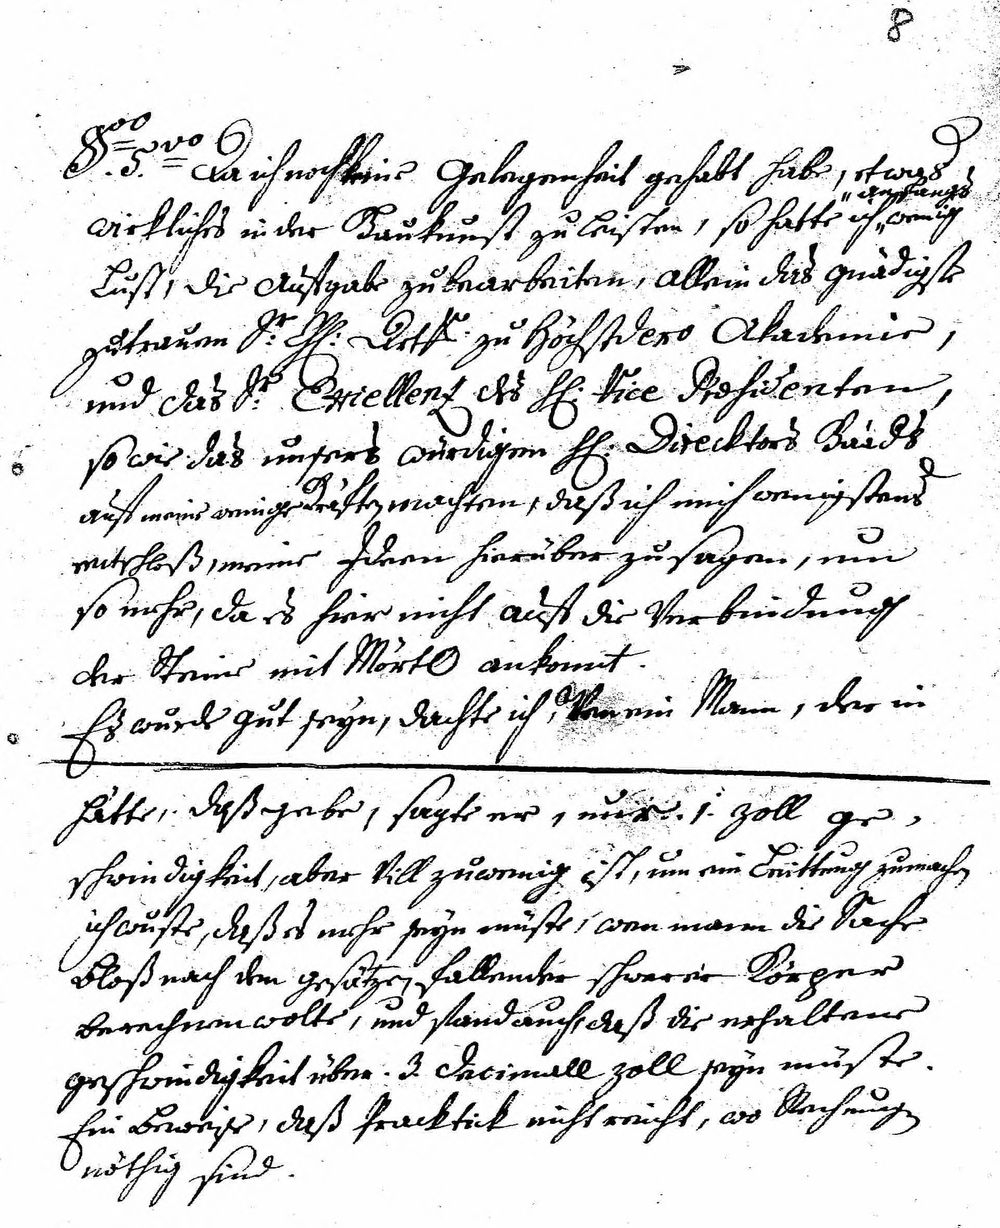 8
Da ich noch keine Gelegenheit gehabt habe, etwas
wirklichs in der Baukunst zu leisten, so hatte ich "anfangs" wenig
Lust, die Aufgabe zu bearbeiten, allein das gnädigste
zutrauen Sr. zu Höchstdero Akademie,
und das Sr. Excellenz des H: Vice Præsidenten,
so wie das unsers würdigen H: Direcktors
auf meine wenige Kräfte, machten, daß ich mich wenigstens
entschloß, meine Ideen hierüber zu sagen, um
so mehr, da es hier nicht auf die Verbindung
der Steine mit Mörtel ankomt.
Es wurde gut seyn, dachte ich, Wen ein Mann, der in
hätte, daß gebe, sagte er, nur. 1. zoll ge,
schwindigkeit, aber Vill zuwenig ist, um ein Leittung zumachen
ich wuste, daß es mehr seyn müste, wen mann die Sache
bloß nach dem gesätzen fallender schwerer Körper
berechnen wolte, und fand auch, daß die erhaltene
geschwindigkeit über. 3. decimall zoll seyn müste.
Ein beweiß, daß Pracktick nicht reicht, wo Rechnung
nöthig sind.